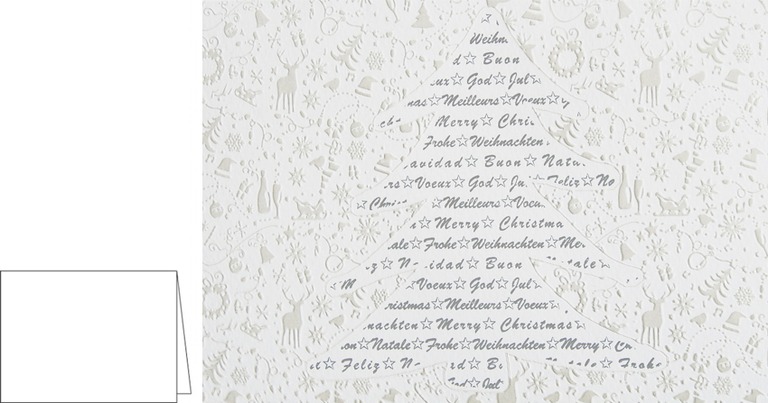 Weihn
d☆ Buon
ux☆ God☆Jul☆
nas☆Meilleurs☆Voeux☆
ch Merry☆ Chri
Frohe☆Weihnachten
avidad☆ Buon☆ Nata
rs☆Voeux☆ God☆Ju ☆Feliz☆No
☆Chri ☆Meilleurs☆Voeu
n☆ Merry☆ Christma
ale☆Frohe☆Weihnachten☆Me
z☆ N idad☆ Buon ale☆
☆M ux☆ God☆Jul☆
ristmas☆Meilleurs☆Voeux☆
nachten☆ Merry☆ Christmas☆
on☆Natale☆Frohe☆Weihnachten☆Merry☆
t☆ Feliz☆ N d☆ B ale☆ Frohe
God☆Jul